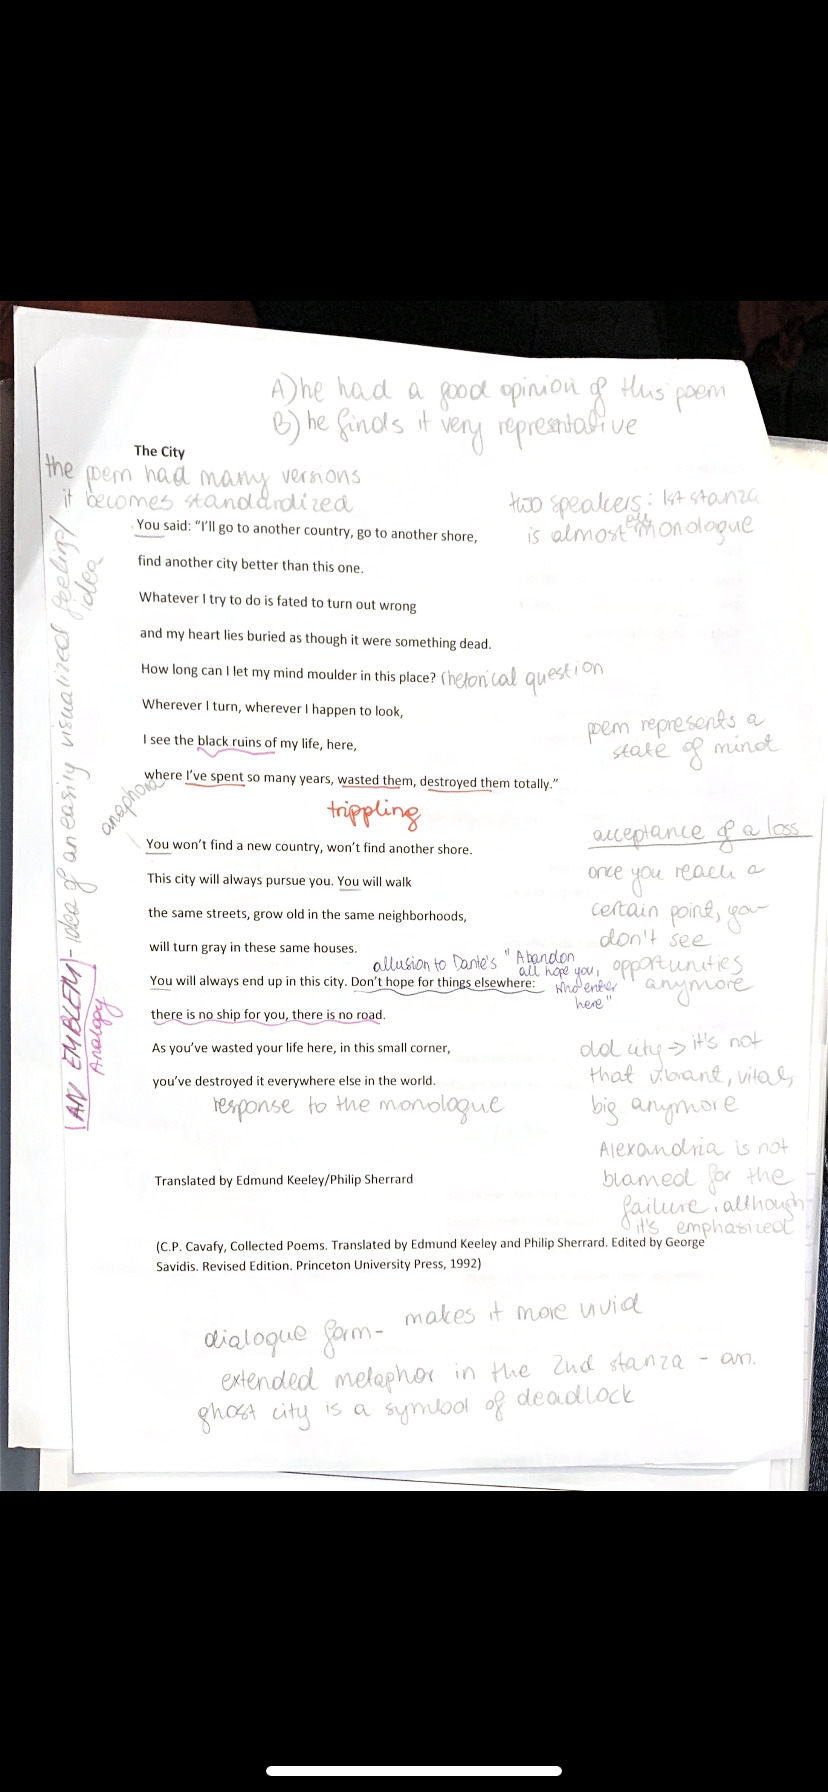 A) he had a good opinion of this poem
B) he finds it very representative
The City
the poem had many versions
it becomes standardized
two speakers: 1st stanza
is almost a monologue
You said: “I’ll go to another country, go to another shore,
find another city better than this one.
Whatever I try to do is fated to turn out wrong
and my heart lies buried as though it were something dead.
How long can I let my mind moulder in this place? rhetorical question
Wherever I turn, wherever I happen to look,
I see the black ruins of my life, here,
where I’ve spent so many years, wasted them, destroyed them totally.”
poem represents a
state of mind
anaphora
trippling
You won’t find a new country, won’t find another shore.
This city will always pursue you. You will walk
the same streets, grow old in the same neighborhoods,
will turn gray in these same houses.
allusion to Dante's "Abandon
all hope you,
who enter
here"
You will always end up in this city. Don’t hope for things elsewhere:
there is no ship for you, there is no road.
As you’ve wasted your life here, in this small corner,
you’ve destroyed it everywhere else in the world.
response to the monologue
acceptance of a loss
once you reach a
certain point, you
don't see
opportunities
anymore
old city → it's not
that vibrant, vital,
big anymore
Alexandria is not
blamed for the
failure, although
it's emphasized
AN EMBLEM - idea of an easily visualized feeling/
idea
Analogy
Translated by Edmund Keeley/Philip Sherrard
(C.P. Cavafy, Collected Poems. Translated by Edmund Keeley and Philip Sherrard. Edited by George
Savidis. Revised Edition. Princeton University Press, 1992)
dialogue form - makes it more vivid
extended metaphor in the 2nd stanza - an.
ghost city is a symbol of deadlock